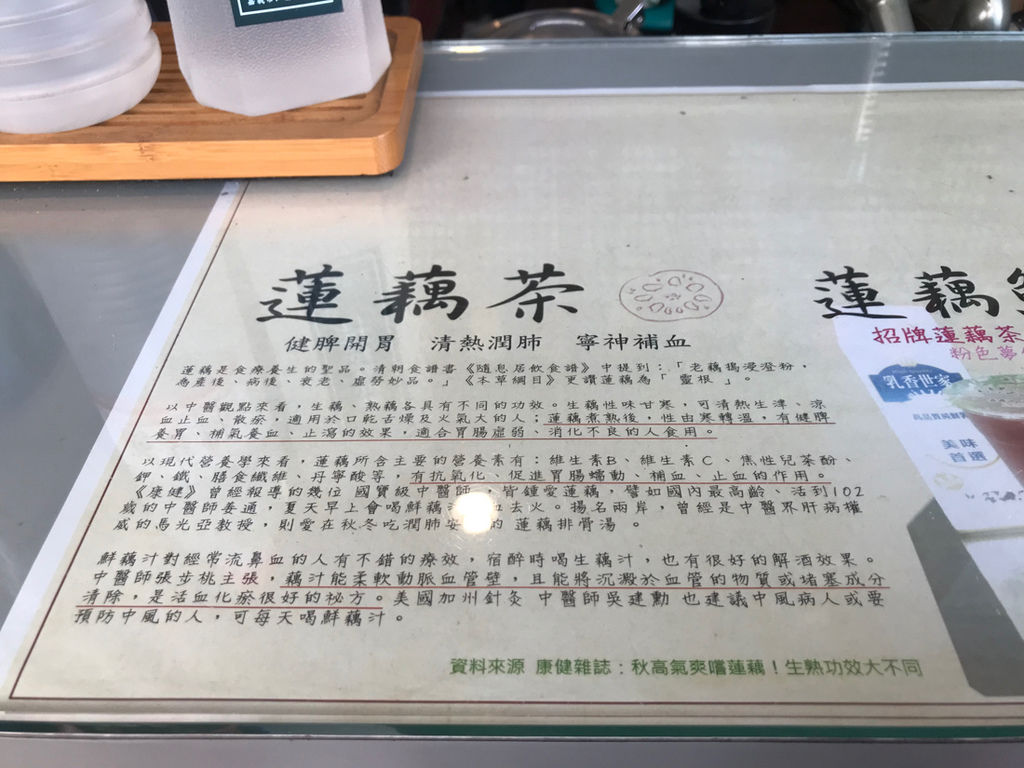 蓮藕茶
健脾開胃 清熱潤肺 寧神補血
蓮藕是食療養生的聖品。清朝食譜書《隨息居飲食譜》中提到：「老藕搗浸澄粉，
為產後、病後、衰老、虛勞妙品。」《本草綱目》更讚蓮藕為「靈根」。
以中醫觀點來看，生藕、熟藕各具有不同的功效。生藕性味甘寒，可清熱生津、涼
血止血、散瘀，適用於口乾舌燥及火氣大的人；蓮藕煮熟後，性由寒轉溫，有健脾
養胃、補氣養血、止瀉的效果，適合胃腸虛弱、消化不良的人食用。
以現代營養學來看，蓮藕所含主要的營養素有：維生素B、維生素C、焦性兒茶酚、
鉀、鐵、膳食纖維、丹寧酸等，有抗氧化、促進胃腸蠕動、補血、止血的作用。
《康健》曾經報導的幾位 國寶級中醫師，皆鍾愛蓮藕，譬如國內最高齡、活到102
歲的中醫師姜通，夏天早上會喝鮮藕 去火。揚名兩岸，曾經是中醫界肝病權
威的馬光亞教授，則愛在秋冬吃潤肺安 的 蓮藕排骨湯 。
鮮藕汁對經常流鼻血的人有不錯的療效，宿醉時喝生藕汁，也有很好的解酒效果。
中醫師張步桃主張，藕汁能柔軟動脈血管壁，且能將沉澱於血管的物質或堵塞成分
清除，是活血化瘀很好的祕方。美國加州針灸 中醫師吳建勳 也建議中風病人或要
預防中風的人，可每天喝鮮藕汁。
資料來源 康健雜誌：秋高氣爽嚐蓮藕！生熟功效大不同
蓮藕
招牌蓮藕茶
粉色夢
乳香世家
美味
首選